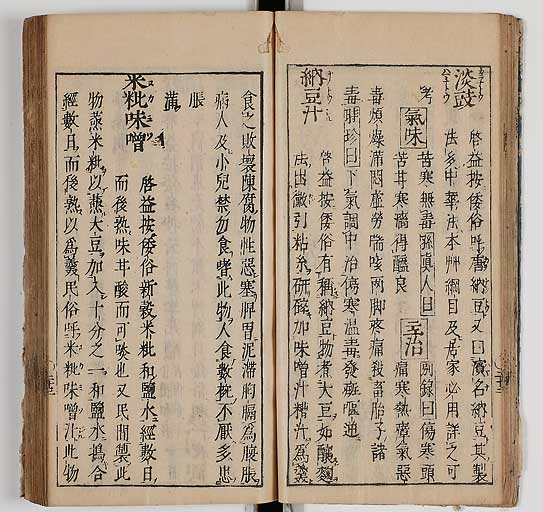 淡豉
啓益按倭俗呼唐納豆又曰濱名納豆其製
法多中華法本艸綱目及居家必用詳之可
考
氣味 苦寒無毒孫眞人曰
苦甘寒濇得醯良
主治 別錄曰傷寒頭
痛寒熱瘴氣惡
毒煩燥滿悶虛勞喘吸兩脚疼痛殺畜胎子諸
毒 珍曰下氣調中治傷寒温毒發斑嘔逆
納豆汁
啓益按倭俗有稱納豆物煮大豆如釀麹
法出黴引粘糸研磋加味噌汁糟汁爲羹
食之敗壞陳腐物性惡塞脾胃泥滯胸膈爲腹脹
病人及小兒禁勿食嗜此物人食數椀不厭多患
脹
滿
米粃味噌
啓益按倭俗新穀米粃和鹽水經數日
而後熟味甘酸而可啖也又民間製此
物蒸米粃以蒸大豆加入十分之一和鹽水搗合
經數日而後熟以爲羹民俗呼米粃味噌汁此物